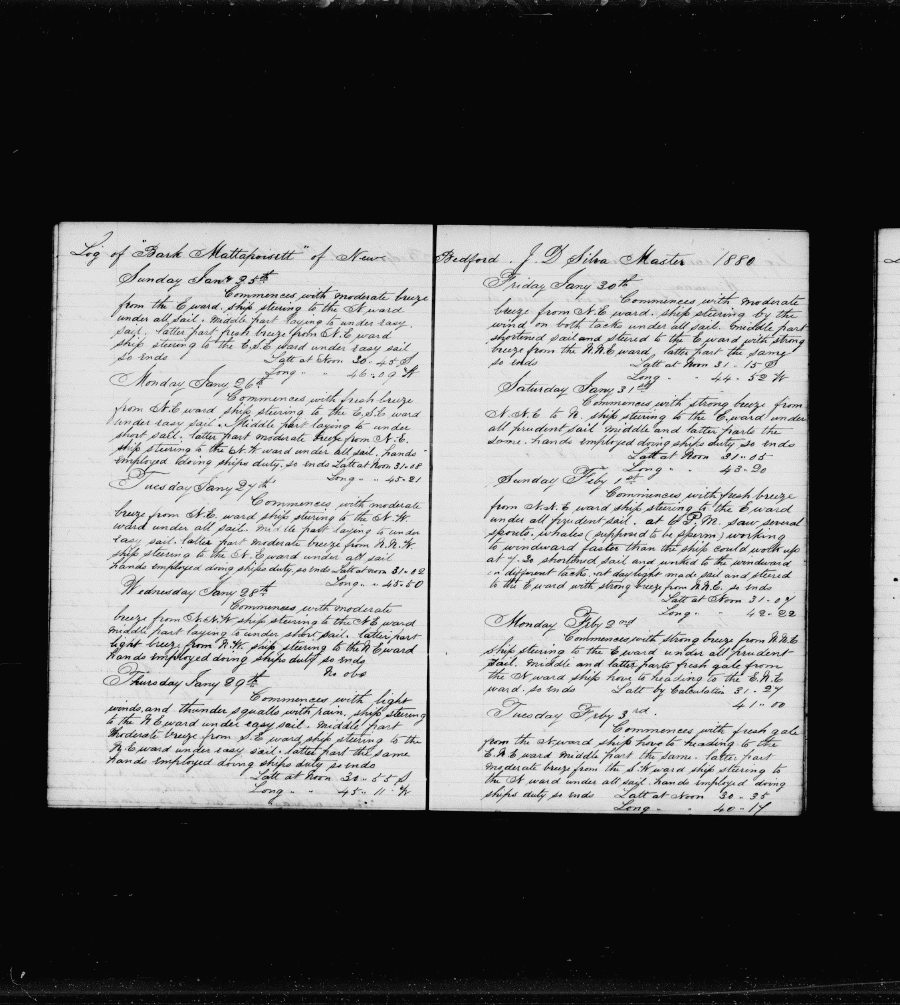 Log of "Bark Mattapoisett" of New
Sunday Jany 25th
Commences with moderate breeze
from the E ward. ship steering to the N ward
under all sail. middle part laying to under easy
sail. latter part fresh breeze from E N.E ward
ship steering to the E.S.E ward under easy sail
So ends Latt at Noon 30-45 S
Long " " 46-09 W
Monday Jany 26th
Commences with fresh breeze
from N.E ward, ship steering to the E.S.E ward
under easy sail. Middle part laying to under
short sail. latter part moderate breeze from N.E.
ship steering to the N.W ward under all sail. hands
employed doing ships duty. so ends Latt at Noon 31-08
Long " " 45-21
Tuesday Jany 27th
Commences with moderate
breeze from N.E ward ship steering to the N.W.
ward under all sail. middle part laying to under
easy sail. latter part moderate breeze from N.N.W.
ship steering to the N.E ward under all sail
hands employed doing ships duty. so ends Latt at noon 31-02
Long " " 45-50
Wednesday Jany 28th
Commences with moderate
breeze from N.N.W ship steering to the N E ward
middle part laying to under short sail. latter part
light breeze from N.W. ship steering to the N E ward
hands employed doing ships duty so ends
No obs
Thursday Jany 29th
Commences with light
winds, and thunder squalls with rain. ship steering
to the N E ward under easy sail. middle part
moderate breeze from S.E ward ship steering to the
N.E ward under easy sail. latter part the same
hands employed doing ships duty so ends
Latt at Noon 30-55 S
Long " " 45-11 W
Bedford. J. D Silva Master 1880
Friday Jany 30th
Commences with moderate
breeze from N.E ward. ship steering by the
wind on both tacks under all sail. middle part
shortened sail and steered to the E ward with strong
breeze from the N.N.E ward, latter part the same
so ends Latt at Noon 31-15 S
Long " " 44-52 W
Saturday Jany 31st
Commences with strong breeze from
N.N.E to N. ship steering to the E.ward under
all prudent sail middle and latter parts the
same. hands employed doing ships duty so ends
Latt at Noon 31-05
Long " " 43-20
Sunday Feby 1st
Commences with fresh breeze
from N.N.E ward ship steering to the E.ward
under all prudent sail. at 6 P.M. saw several
spouts. whales (supposed to be sperm) working
to windward faster than the ship could work up
at 7.30 shortened sail and worked to the windward
on different tacks. at daylight made sail and steered
to the E ward with strong breeze from N.N.E. so ends
Latt at Noon 31-07
Long " " 42-22
Monday Feby 2nd
Commences with strong breeze from N.N.E
Ship steering to the E ward under all prudent
sail. middle and latter parts fresh gale from
the N ward ship hove to heading to the E.N.E
ward. so ends Latt by Calculation 31-27
41-00
Tuesday Feby 3rd.
Commences with fresh gale
from the N.ward ship hove to heading to the
E.N.E ward middle part the same. latter part
moderate breeze from the S.W ward ship steering to
the N ward under all sail. hands employed doing
ships duty, so ends Latt at Noon 30-35
Long " " 40-17